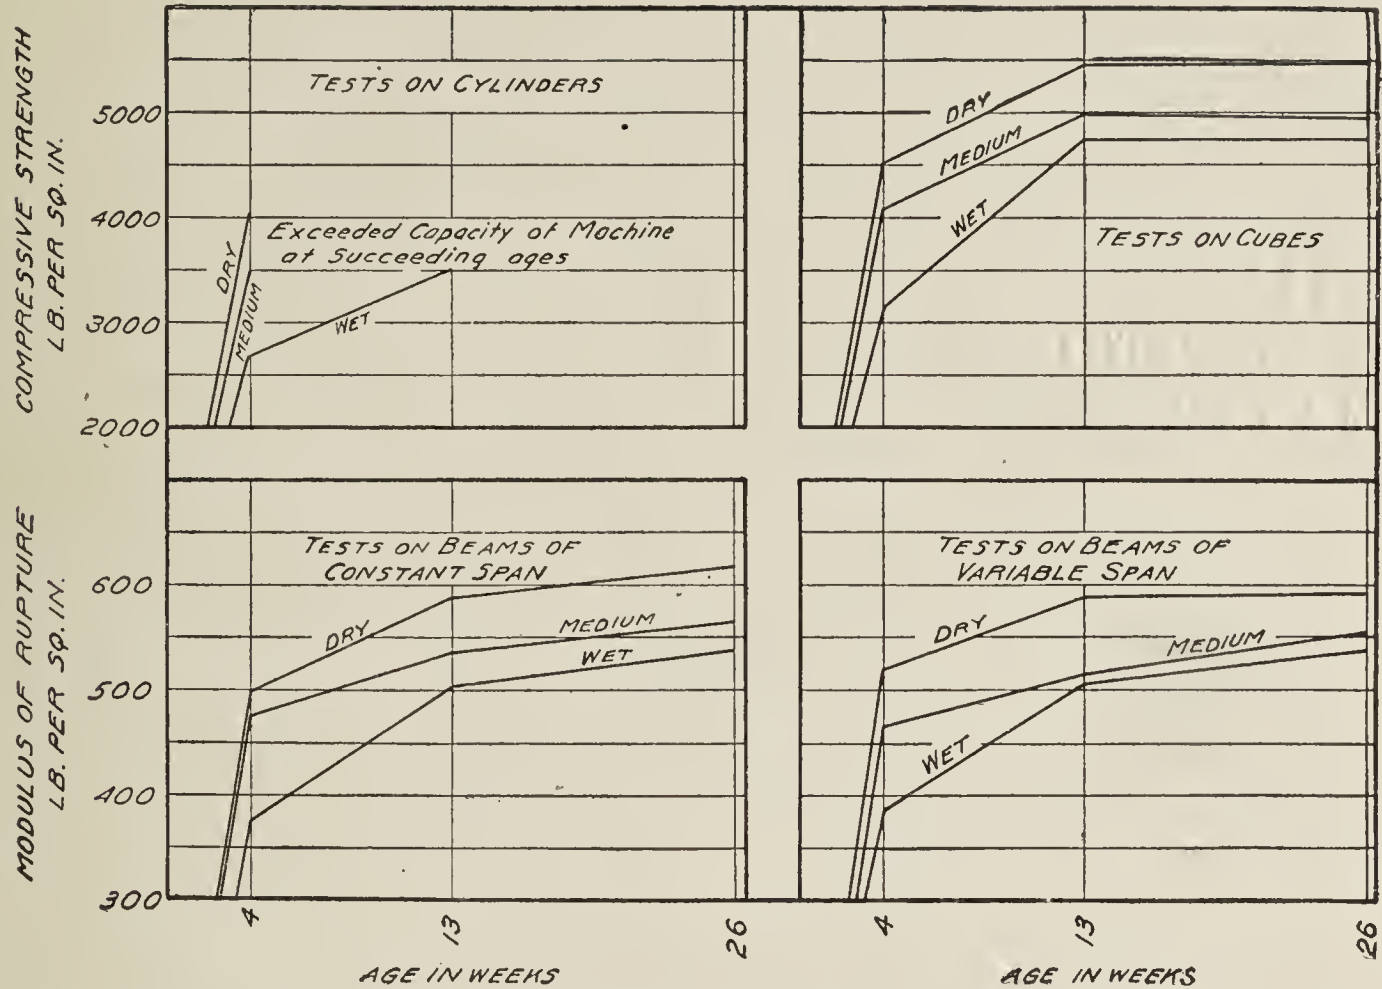 COMPRESSIVE STRENGTH
LB. PER SQ. IN.
5000
4000
3000
2000
TESTS ON CYLINDERS
DRY
MEDIUM
WET
Exceeded Capacity of Machine
at Succeeding ages
DRY
MEDIUM
WET
TESTS ON CUBES
MODULUS OF RUPTURE
LB. PER SQ. IN.
600
500
400
300
TESTS ON BEAMS OF
CONSTANT SPAN
DRY
MEDIUM
WET
4
13
26
AGE IN WEEKS
TESTS ON BEAMS OF
VARIABLE SPAN
DRY
MEDIUM
WET
4
13
26
AGE IN WEEKS